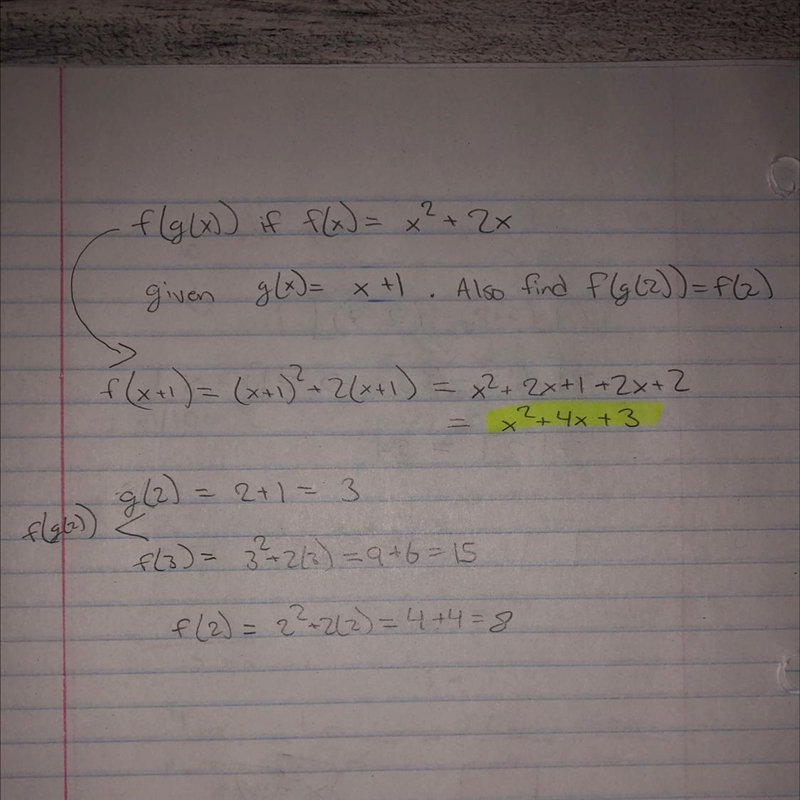 f(g(x)) if f(x) = x² + 2x
given g(x) = x + 1 . Also find f(g(2)) = f(2)
f(x+1) = (x+1)² + 2(x+1) = x² + 2x + 1 + 2x + 2
= x² + 4x + 3
g(2) = 2 + 1 = 3
f(g(2)) <
f(3) = 3² + 2(3) = 9 + 6 = 15
f(2) = 2² + 2(2) = 4 + 4 = 8